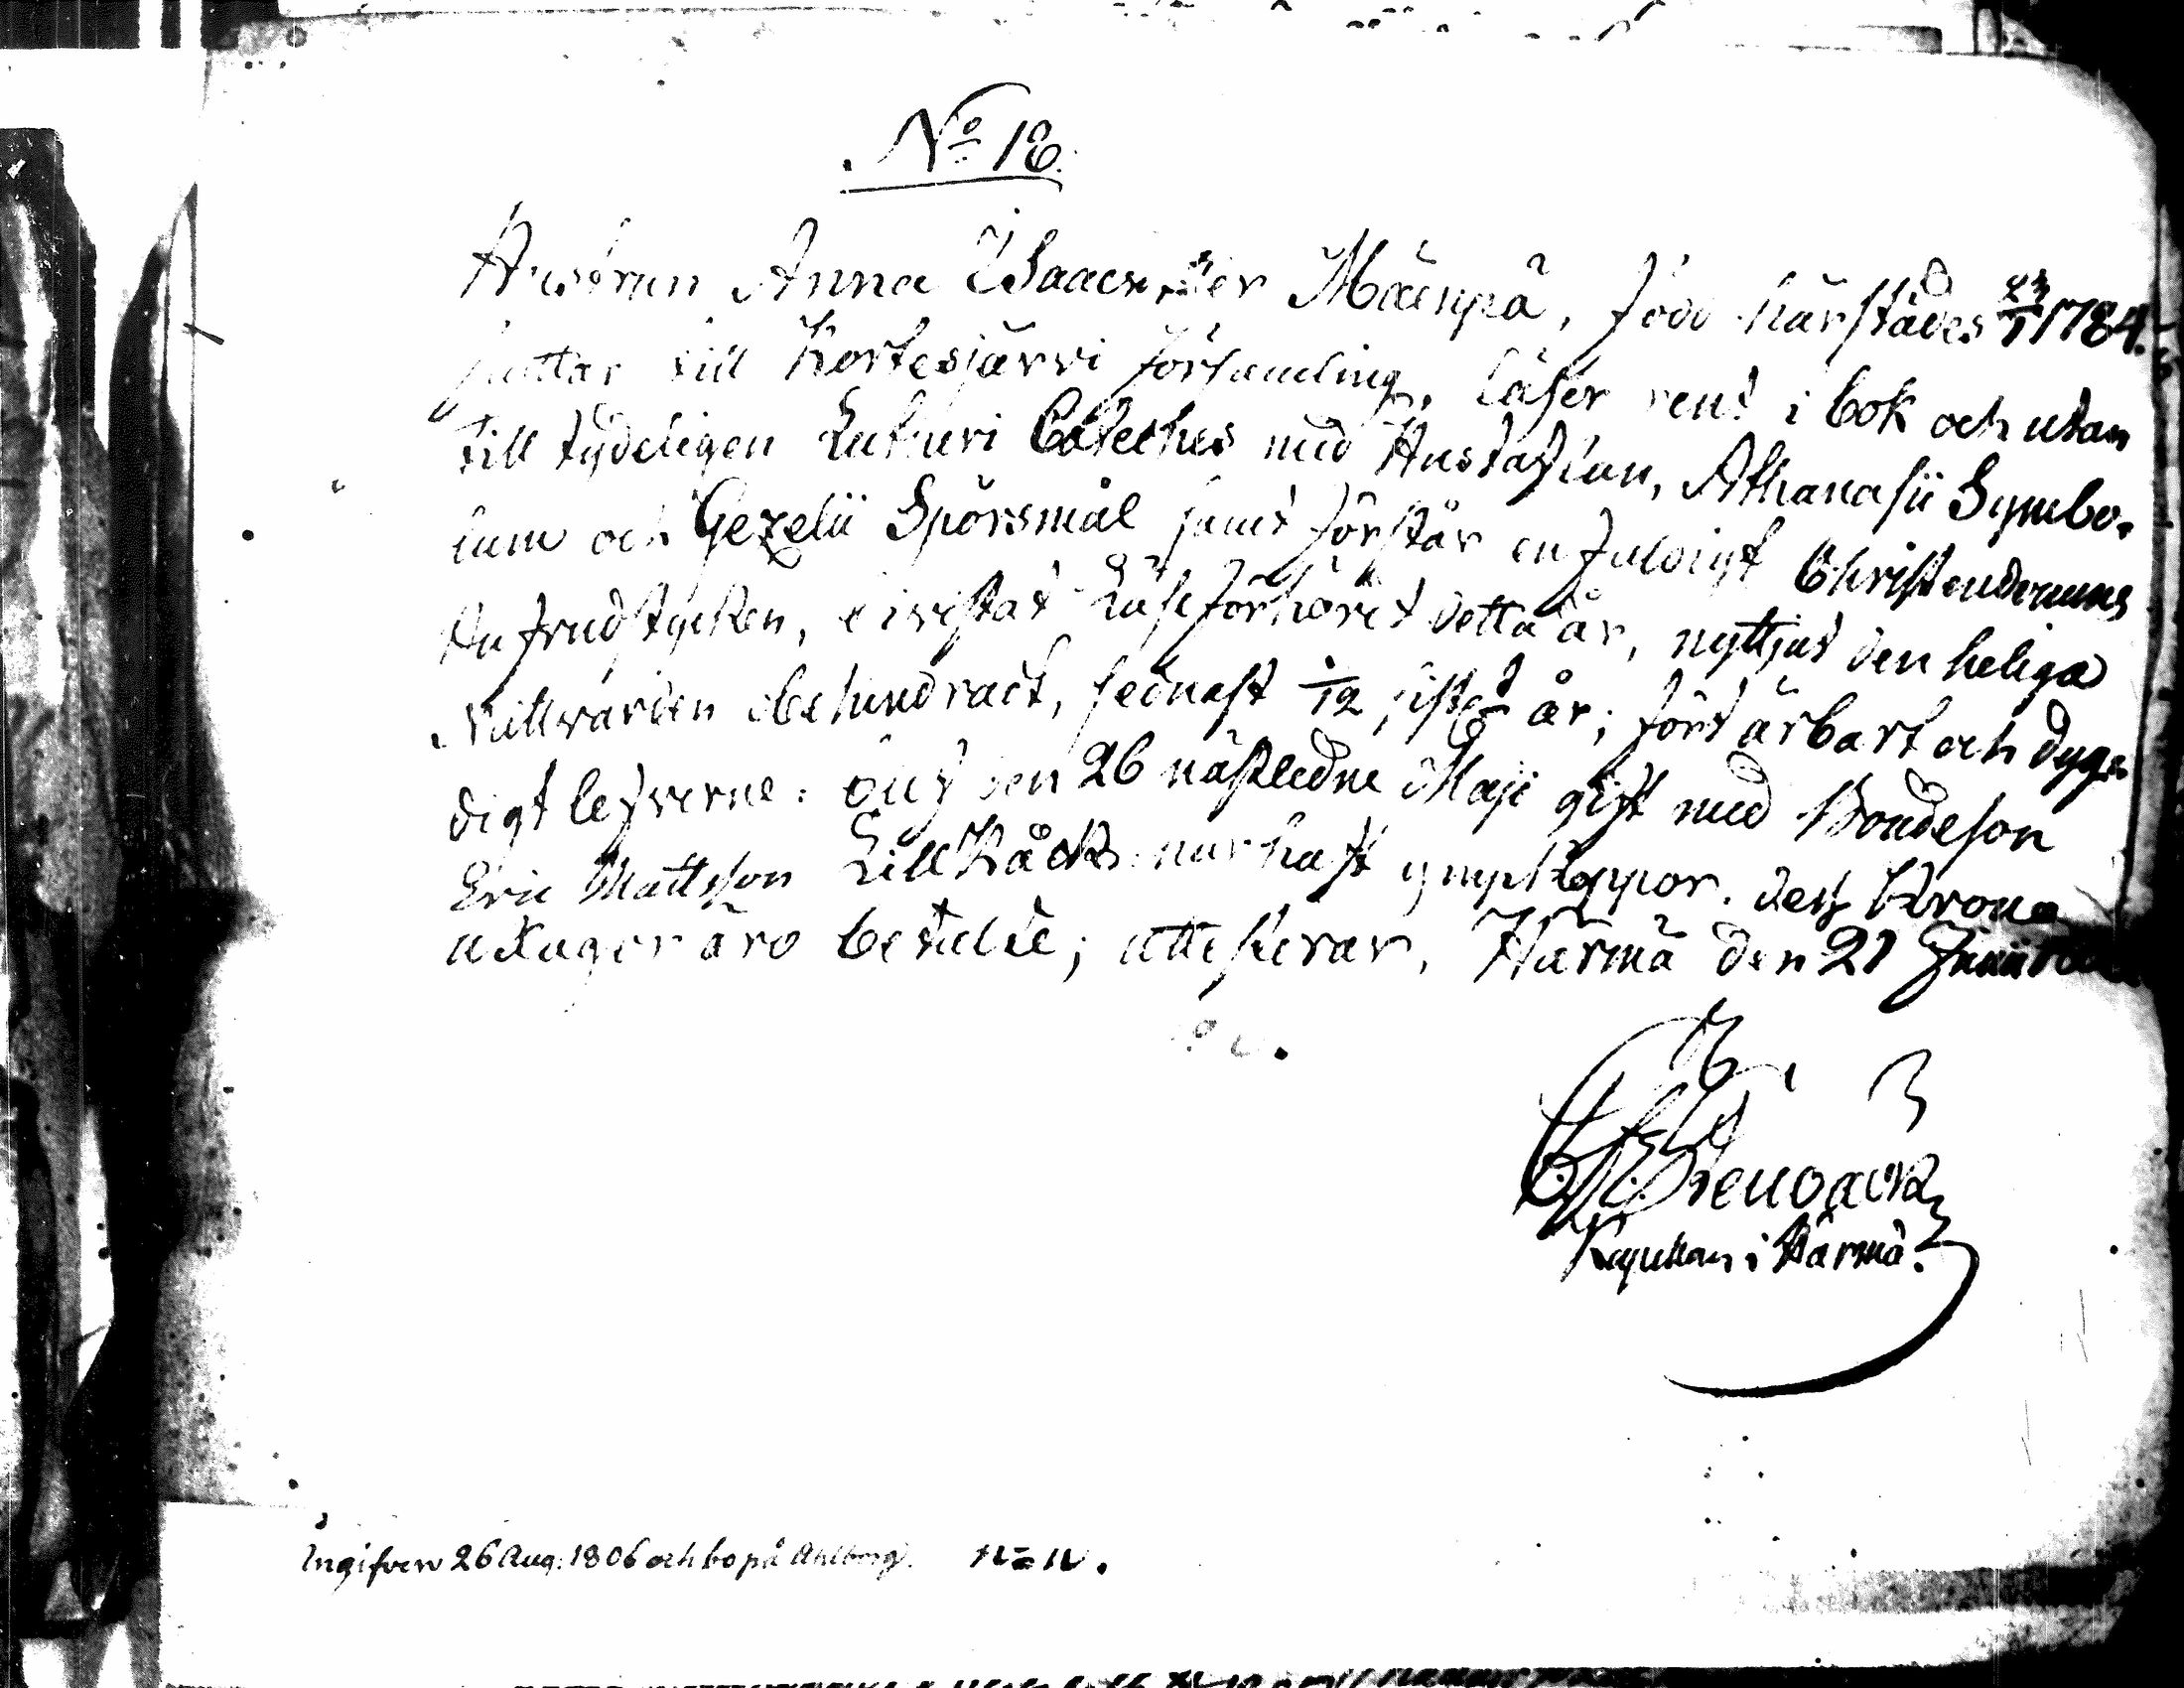 No 18.
Hustrun Anna Isaacsdoter Mäenpä, född härstädes 23/1 1784.
flyttar till Kortesjärvi församling, läser rent i bok och utan
till tydeligen Lutheri Cateches med Hustaflan, Athanasii Symbo-
lum och Gezelii Spörsmål samt förstår enfaldigt Christendomens
hufvudstycken, bivistat Läseförhöret detta år, nyttjat den heliga
Nattvarden obehindradt, sednast 1/12 sistl. år; fört ärbart och dyg-
digt lefverne: blef den 26 nästledne Maji gift med Bondeson
Eric Mattsson Lill Kåck: har haft ympkoppor. dess Krono
utlagor äro betalte; attesterar, Härmä den 21 Junii
Stenbäck
Kapellan i Härmä.
Ingifven 26 Aug: 1806 och bo på Ahlborg. N=IV.